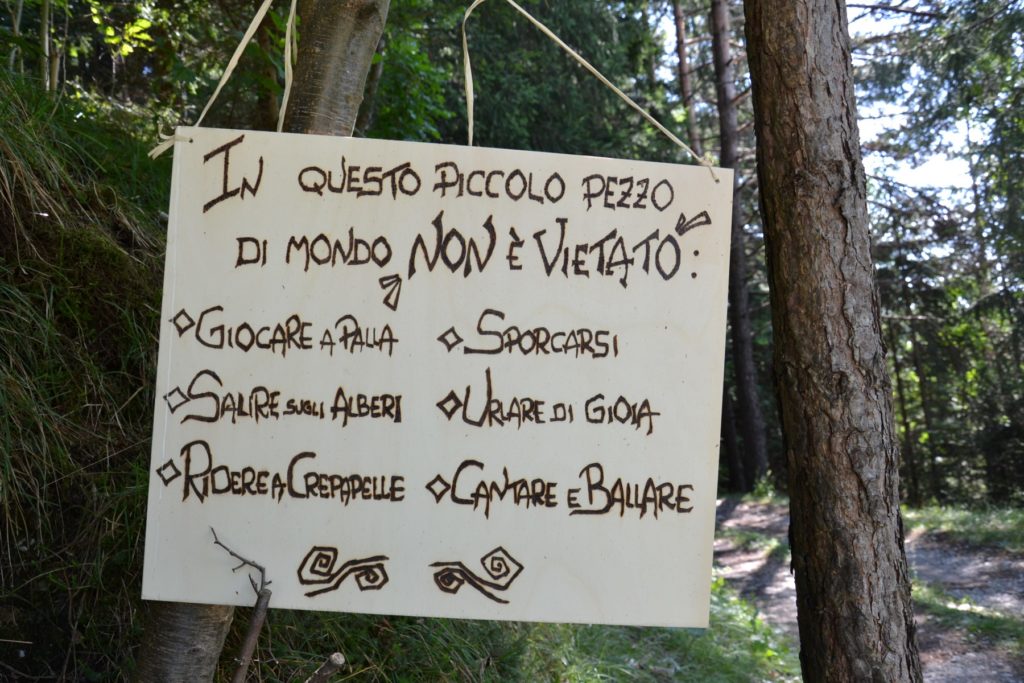 In QUESTO PICCOLO PEZZO
DI MONDO NON È VIETATO:
GIOCARE A PALLA
SPORCARSI
SALIRE SUGLI ALBERI
URLARE DI GIOIA
RIDERE A CREPAPELLE
CANTARE E BALLARE